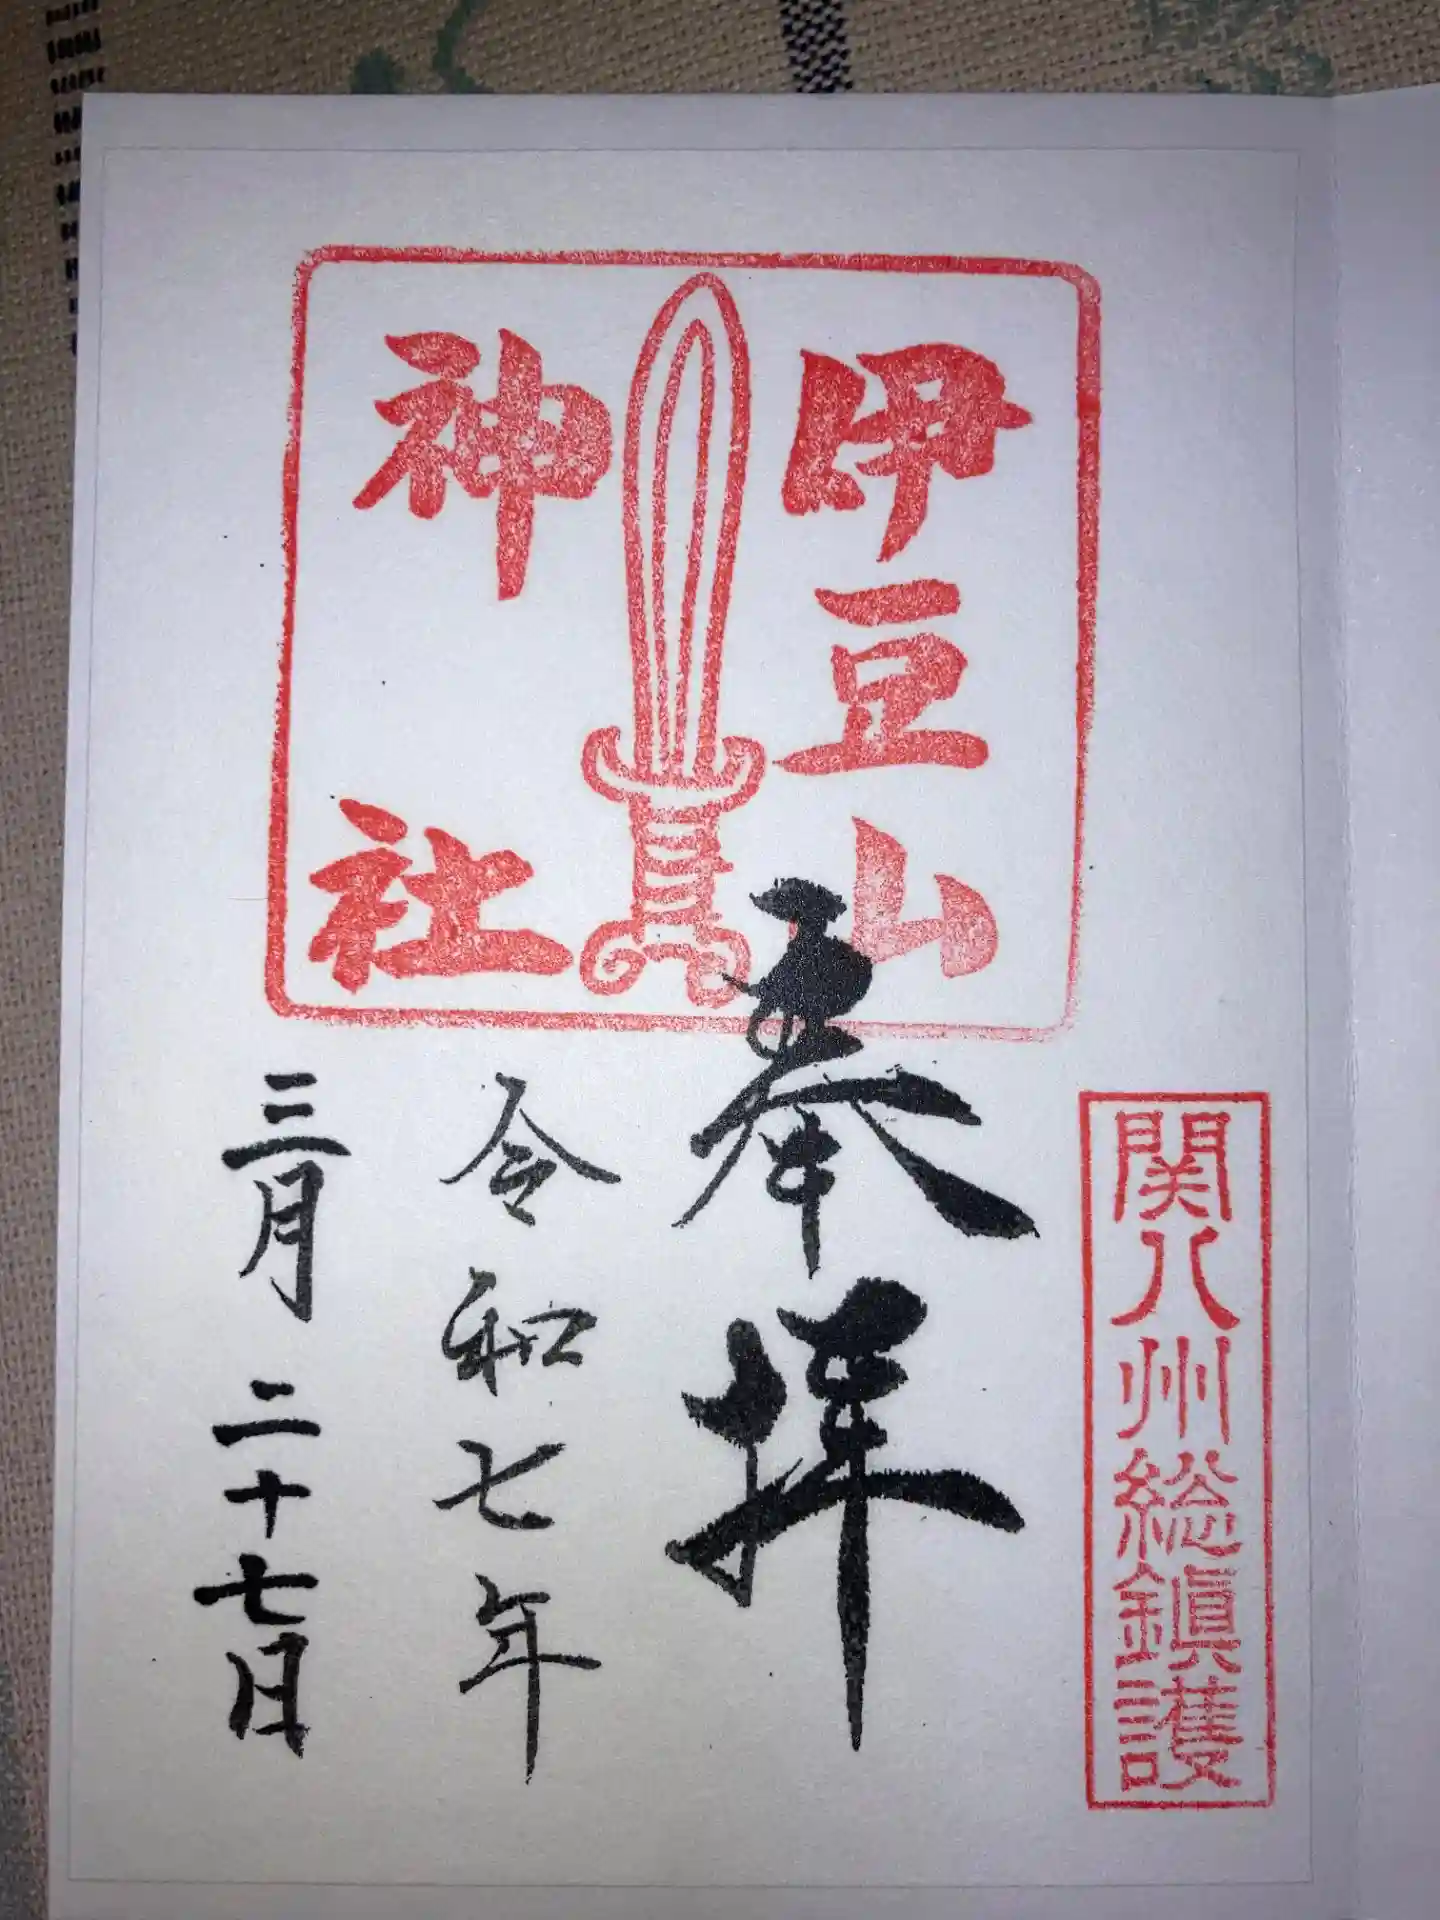 関八州総鎮護
伊豆山
神社
奉拝
令和七年
三月二十七日